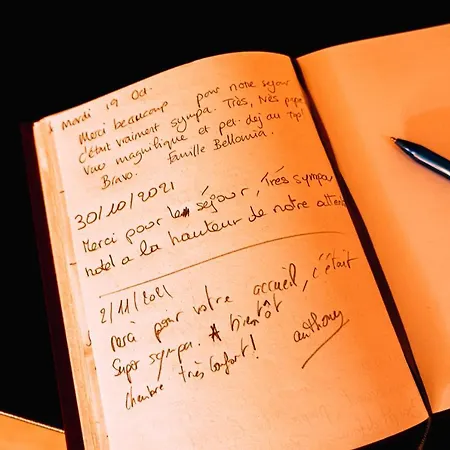 Mardi 19 Oct.
Merci beaucoup pour notre séjour
c'était vraiment sympa. Très, très
Vue magnifique et pet. dej au Top!
Bravo. Famille Bellomia.
30/10/2021
Merci pour le séjour, Très sympa
hotel a la hauteur de notre
2/11/2021
pour votre accueil, c'était
Super sympa. A bientôt
chambre très confort! anthony